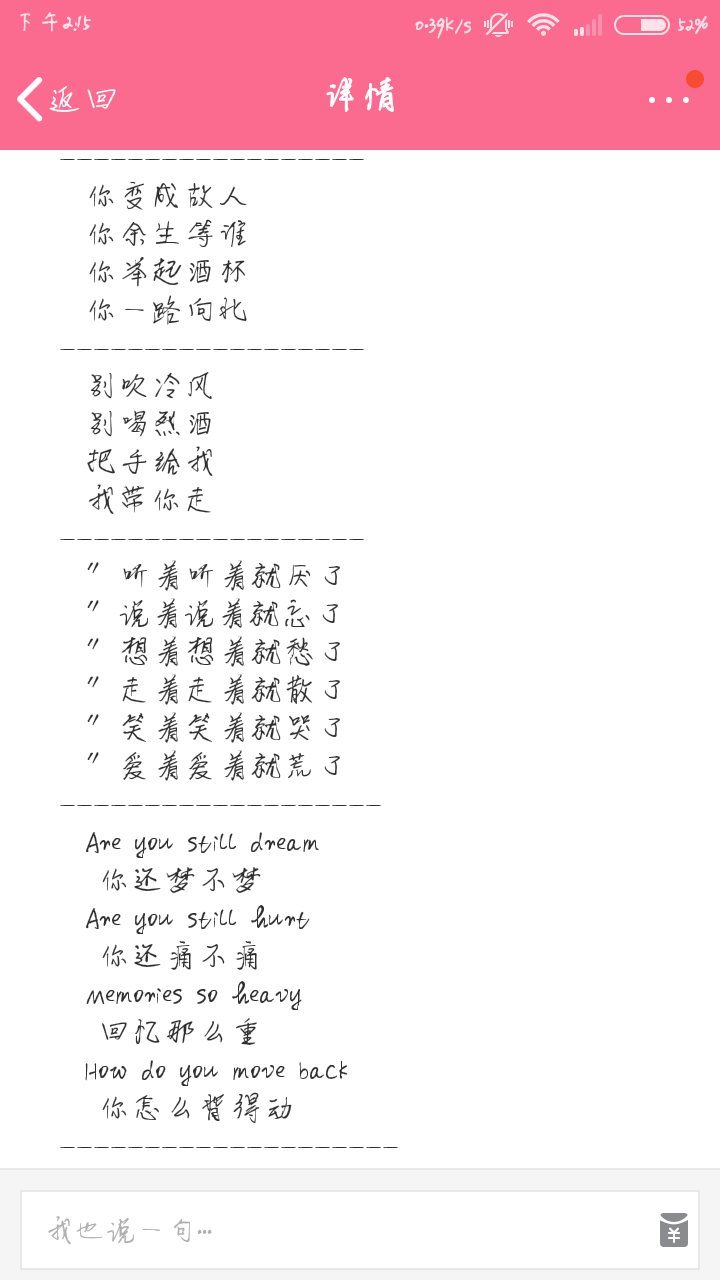 下午2:15 0.39K/S 52%
返回 详情 ...
__________________
你变成故人
你余生等谁
你举起酒杯
你一路向北
__________________
别吹冷风
别喝烈酒
把手给我
我带你走
__________________
〃听着听着就厌了
〃说着说着就忘了
〃想着想着就愁了
〃走着走着就散了
〃笑着笑着就哭了
〃爱着爱着就荒了
___________________
Are you still dream
你还梦不梦
Are you still hurt
你还痛不痛
Memories so heavy
回忆那么重
How do you move back
你怎么背得动
____________________
我也说一句…
¥